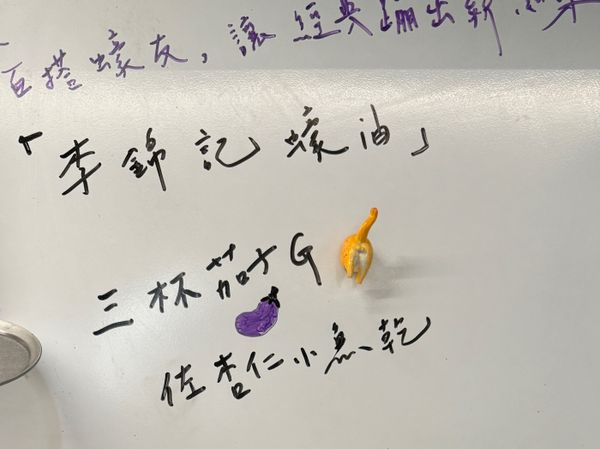 百搭蠔友,讓經典蹦出新滋味
「李錦記蠔油」
三杯茄子G
佐杏仁小魚乾